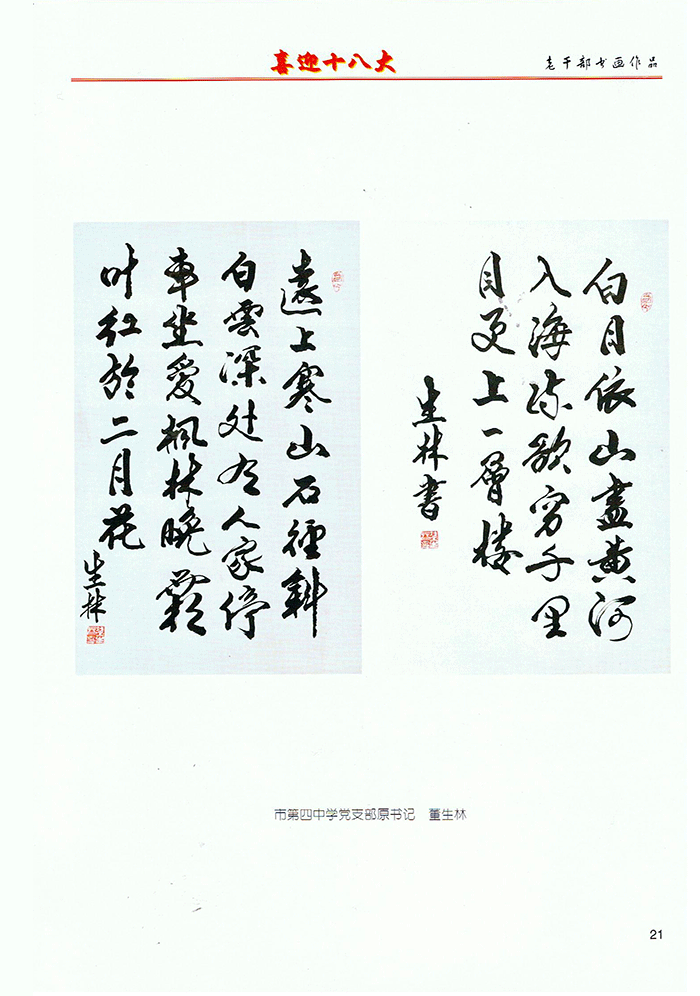 喜迎十八大
老干部书画作品
白日依山盡黄河
入海流欲穷千里
目更上一層楼
生林書
遠上寒山石徑斜
白雲深处有人家停
車坐愛楓林晚霜
叶红於二月花
生林
市第四中学党支部原书记 董生林
21